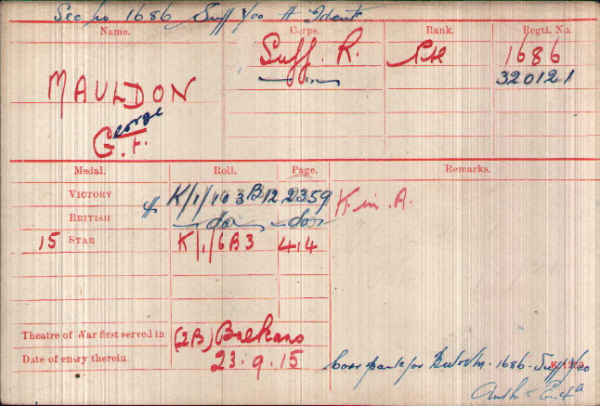 See No 1686 Suff Yeo # Ident.
Name. Corps. Rank. Regtl. No.
Suff. R. Pte 1686
320121
MAULDON
George F.
Medal. Roll. Page. Remarks.
VICTORY K/1/103B12 2359 K in A.
BRITISH do do
15 STAR K/1/6B3 414
Theatre of War first served in (2B) Balkans
Date of entry therein 23.9.15
1686 - Suff Yeo